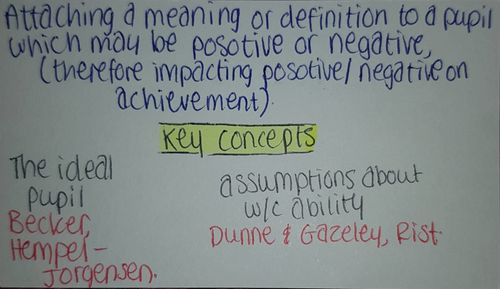 Attaching a meaning or definition to a pupil
which may be posotive or negative,
(therefore impacting posotive/negative on
achievement).
key concepts
The ideal
pupil
Becker,
Hempel-
Jorgensen.
assumptions about
w/c ability
Dunne & Gazeley, Rist.